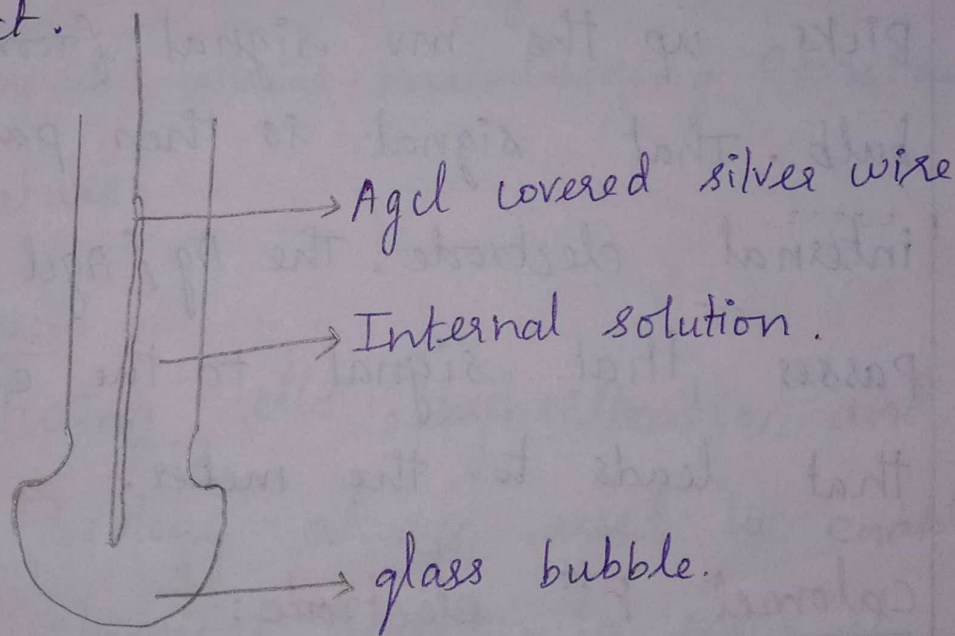 ct.
Agcl covered silver wire
Internal solution.
glass bubble.